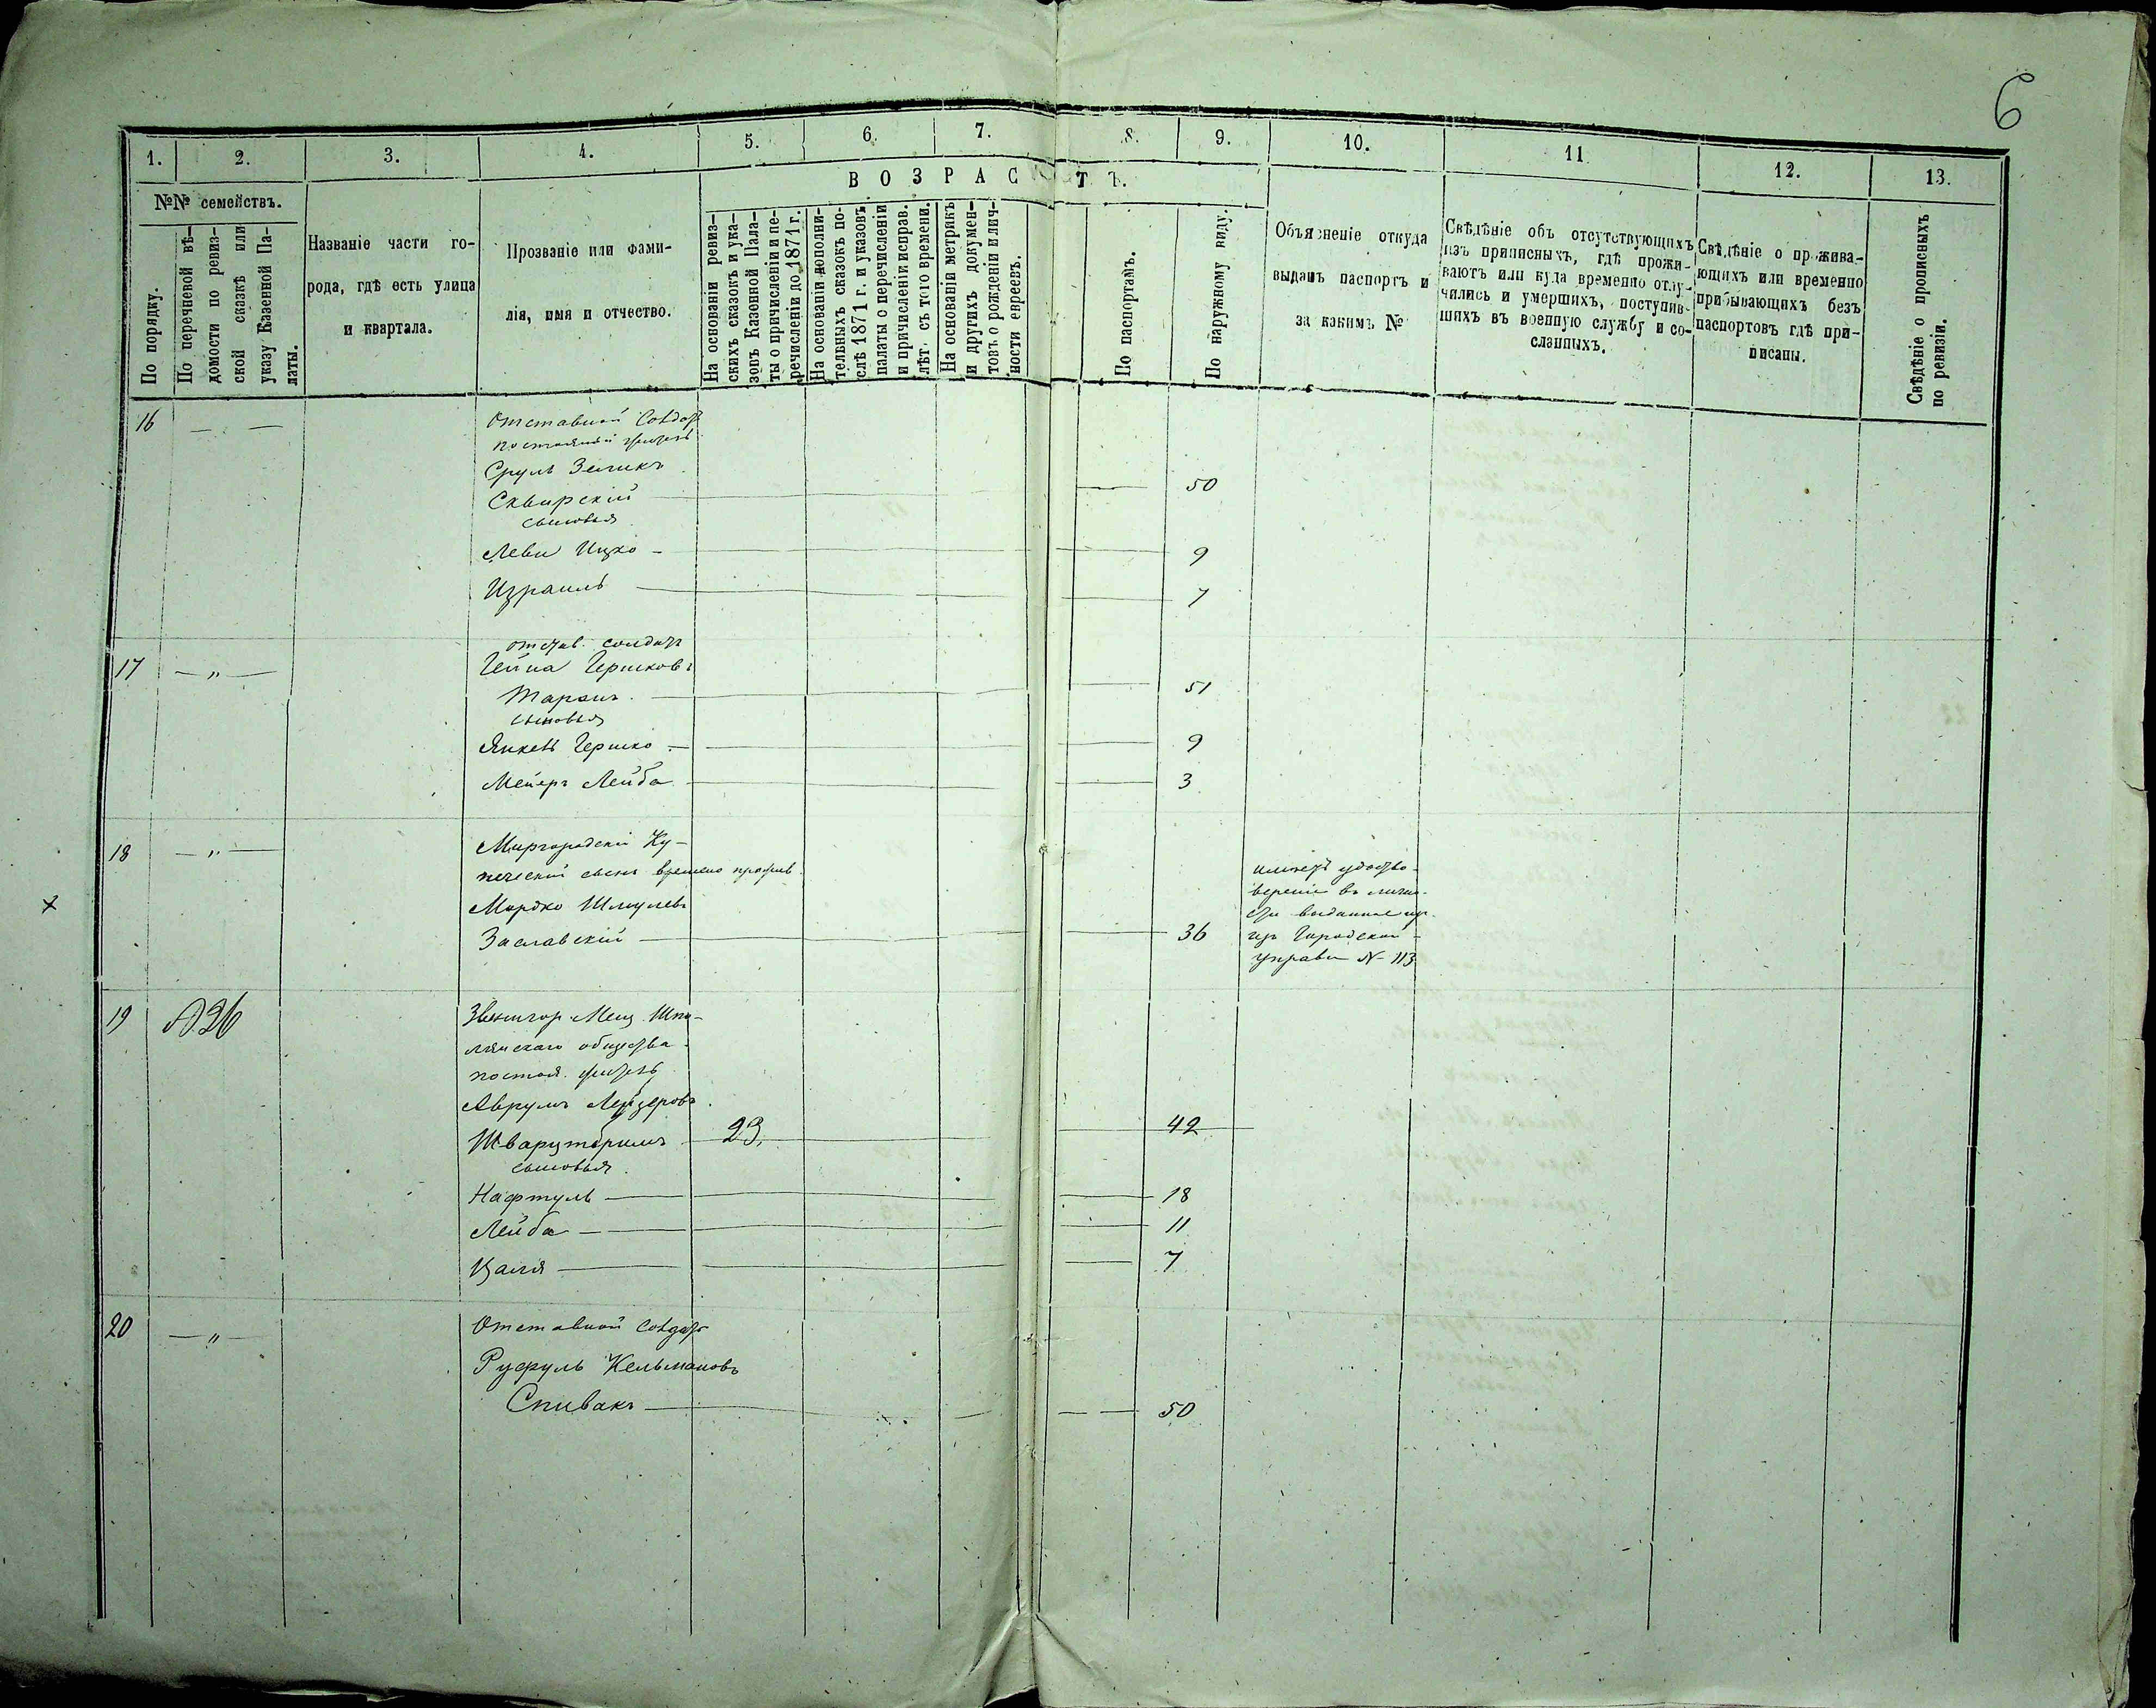 6
1. 2. 3. 4. 5. 6. 7. 8. 9. 10. 11 12. 13.
В О З Р А С Т Ъ.
№№ семействъ.
По порядку.
По перечневой вѣ-
домости по ревиз-
ской сказкѣ или
указу Казенной Па-
латы.
Названіе части го-
рода, гдѣ есть улица
и квартала.
Прозваніе или фами-
лія, имя и отчество.
На основаніи ревиз-
скихъ сказокъ и ука-
зовъ Казенной Пала-
ты о причисленіи и пе-
речисленіи до 1871 г.
На основаніи дополни-
тельныхъ сказокъ по-
слѣ 1871 г. и указовъ
палаты о перечисленіи
и причисленіи исправ.
лѣт. съ того времени.
На основаніи метрикъ
и другихъ докумен-
товъ о рожденіи и лич-
ности евреевъ.
По паспортамъ.
По наружному виду.
Объясненіе откуда
выданъ паспортъ и
за какимъ №
Свѣдѣніе объ отсутствующихъ
изъ приписныхъ, гдѣ прожи-
ваютъ или куда временно отлу-
чились и умершихъ, поступив-
шихъ въ военную службу и со-
сланныхъ.
Свѣдѣніе о прожива-
ющихъ или временно
прибывающихъ безъ
паспортовъ гдѣ при-
писаны.
Свѣдѣніе о прописныхъ
по ревизіи.
16 — —
Отставной Солдат
Сруль Зеликъ
Сквирскій — 50
сыновья
Леви Ицко — 9
Израиль — 7
17 — " —
отстав. солдатъ
Гершковъ
51
сыновья
Янкель Гершко — 9
Мейеръ Лейба — 3
18 — " —
Миргородскій Ку-
печескій сынъ временно прожив.
Мордко Шмулевъ
Заславскій — 36
имѣетъ удосто-
вереніе въ лично-
сти выданное
изъ Городской
управы № 113
19 № 26
Звенигор. Мещ. Шпо-
лянскаго общества
постоя. житель
Аврумъ Лейзеровъ
23. 42
сыновья
Нафтуль — 18
Лейба — 11
7
20 — " —
Отставной Солдатъ
Кельмановъ
Спивакъ — 50